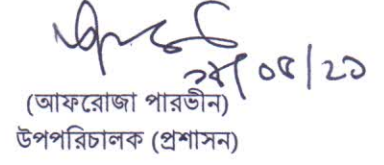 ০৫/২১
(আফরোজা পারভীন)
উপপরিচালক (প্রশাসন)